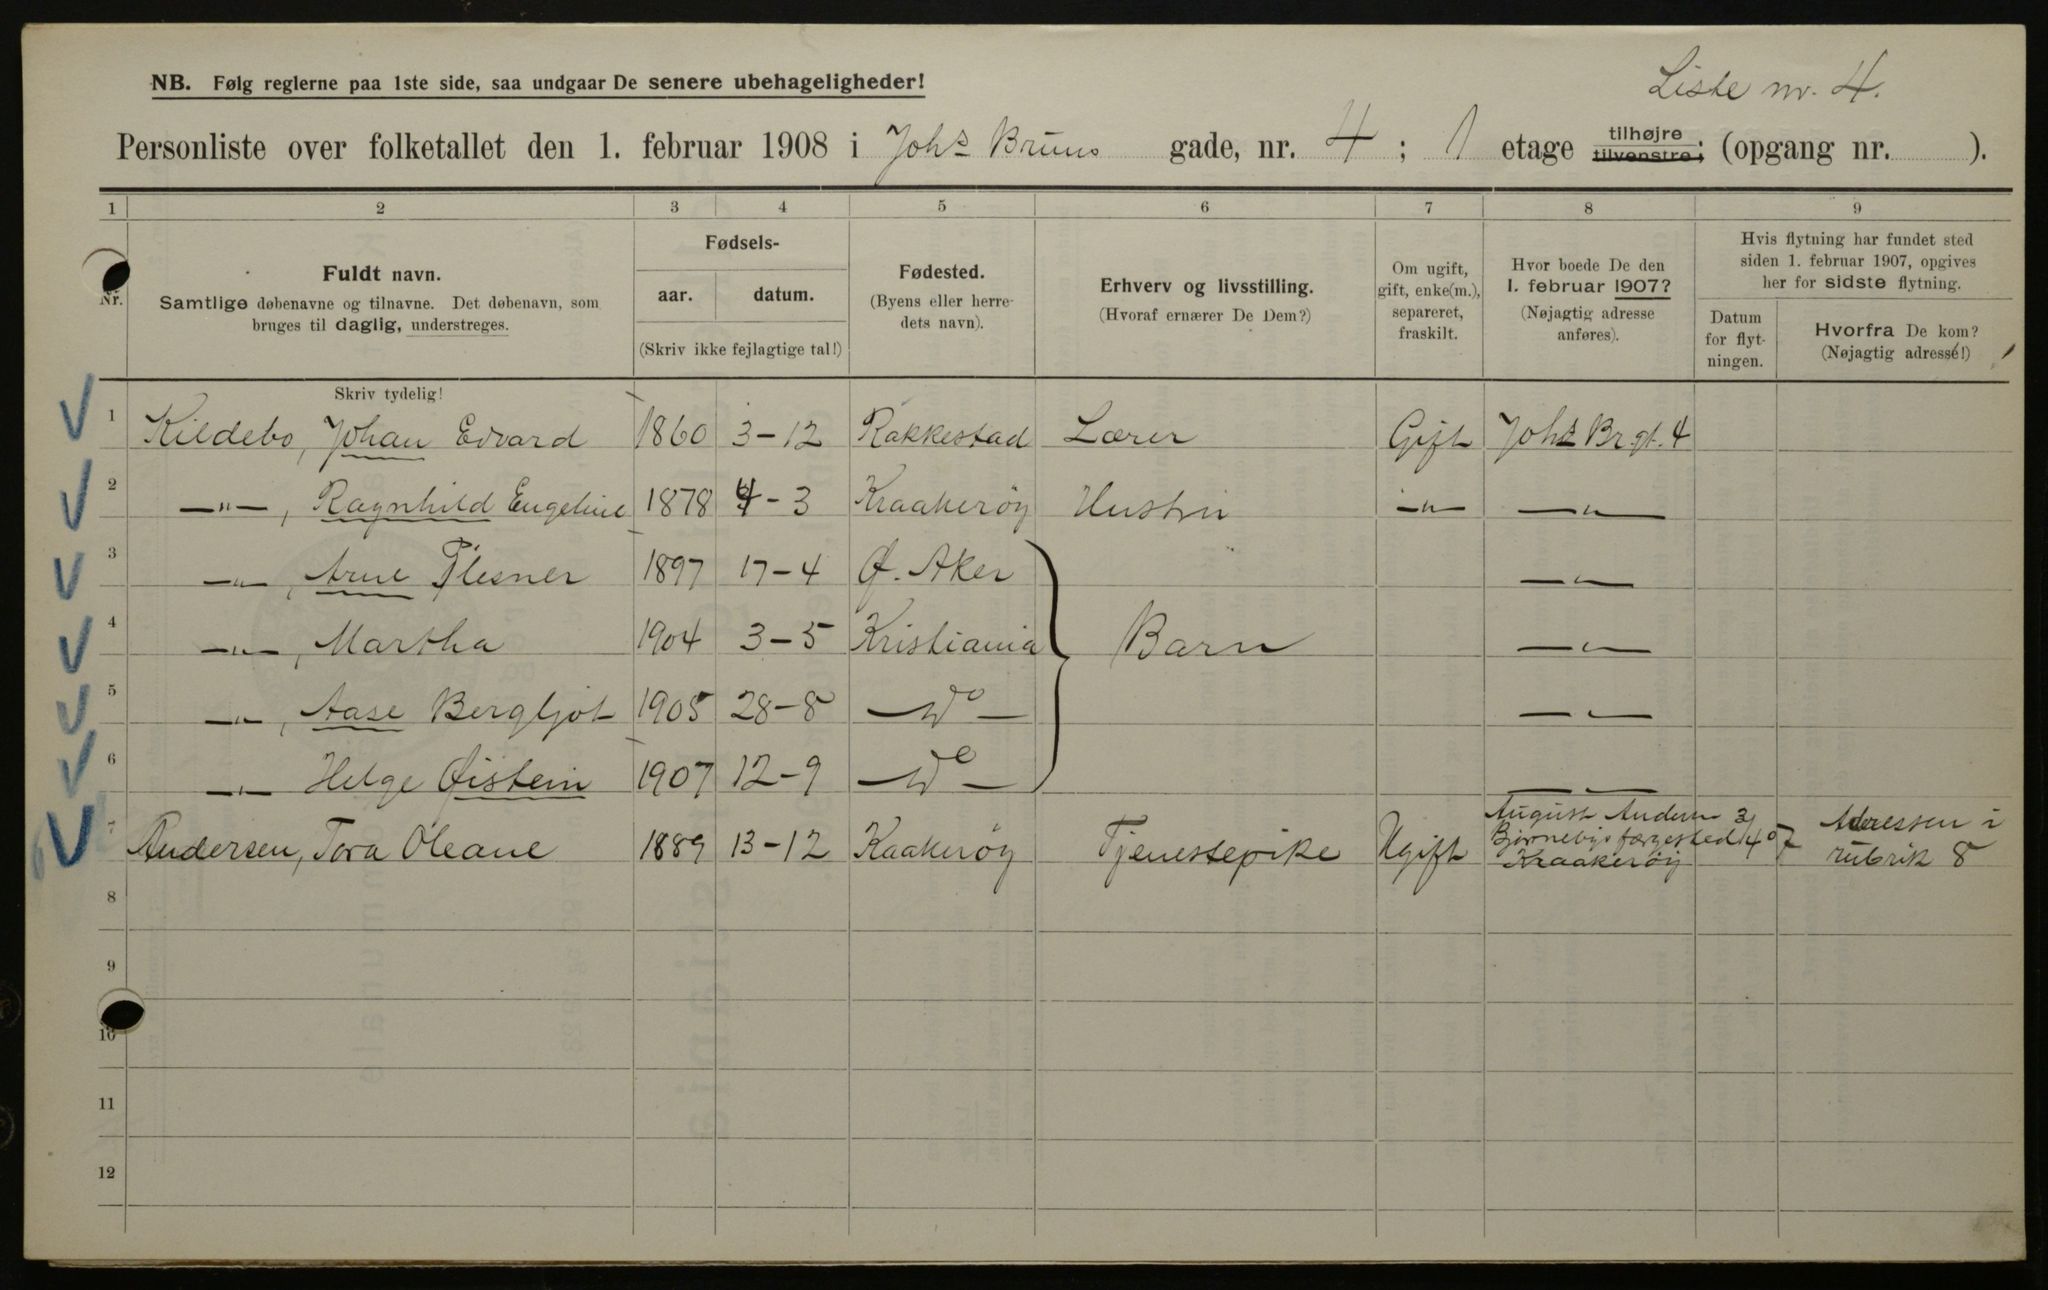 Liste nr. 4.
NB. Følg reglerne paa 1ste side, saa undgaar De senere ubehageligheder!
Personliste over folketallet den 1. februar 1908 i Johs Bruns gade, nr. 4; 1 etage tilhøjre tilvenstre; (opgang nr. ).
1 2 3 4 5 6 7 8 9
Nr.
Fuldt navn.
Samtlige døbenavne og tilnavne. Det døbenavn, som
bruges til daglig, understreges.
Fødsels-
aar. datum.
(Skriv ikke fejlagtige tal!)
Fødested.
(Byens eller herre-
dets navn).
Erhverv og livsstilling.
(Hvoraf ernærer De Dem?)
Om ugift,
gift, enke(m.),
separeret,
fraskilt.
Hvor boede De den
1. februar 1907?
(Nøjagtig adresse
anføres).
Hvis flytning har fundet sted
siden 1. februar 1907, opgives
her for sidste flytning.
Datum
for flyt-
ningen.
Hvorfra De kom?
(Nøjagtig adresse!)
Skriv tydelig!
1 Kildebo, Johan Edvard 1860 3-12 Rakkestad Lærer Gift Johs Br. gt. 4
2 —"—, Ragnhild Engeline 1878 4-3 Kraakerøy Hustru —"— —"—
3 —"—, Arne Plesner 1897 17-4 Ø. Aker —"—
4 —"—, Martha 1904 3-5 Kristiania Barn —"—
5 —"—, Aase Bergljot 1905 28-8 —do— —"—
6 —"— Helge Øistein 1907 12-9 —do— —"—
7 Andersen, Tora Oleane 1889 13-12 Kaakerøy Tjenestepike Ugift August Andersen
Bjørnebys færgested
Kraakerøy 3/4 07 Adressen i
rubrik 8
8
9
10
11
12